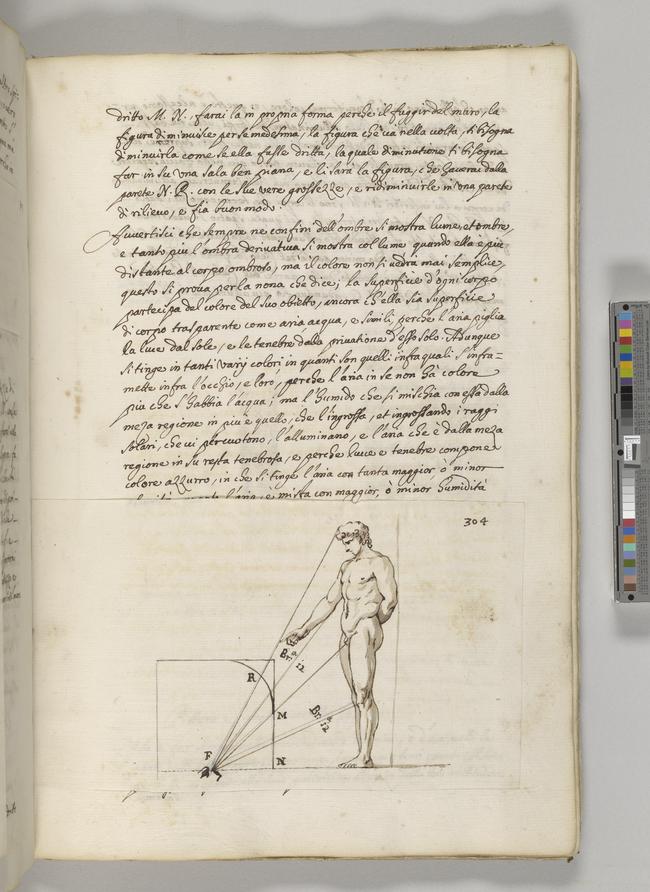 dritto M. N., farai la in propria forma perche il fuggir del muro, la
figura diminuisce per se medesima, la figura che và nella volta, ti bisogna
diminuirla come se ella fusse dritta, la quale diminutione ti bisogna
far in su una sala ben piana, e li sarà la figura, che haverai dalla
parete N. R. con le sue vere grossezze, e ridiminuirle in una parete
di rilievo, e fia buon modo.
Avvertisci che sempre ne confini dell'ombre si mostra lume, et ombre,
e tanto piu l'ombra derivativa si mostra col lume quando ella e piu
distante al corpo ombroso, mà il colore non si vedrà mai semplice,
questo si prova per la nona che dice; la superficie d'ogni corpo
partecipa del colore del suo obietto, ancora ch'ella sia superficie
di corpo trasparente come aria acqua, e simili, perche l'aria piglia
la luce dal sole, e le tenebre dalla privatione d'esso sole. Adunque
si tinge in tanti varij colori in quanti son quelli infra quali s'infra=
mette infra l'occhio, e loro, perche l'aria in se non hà colore
piu che s'habbia l'acqua; ma l'humido che si mischia con essa dalla
meza regione in giu è quello, che l'ingrossa, et ingrossando i raggi
solari, che vi percuotono, l'alluminano, e l'aria che è dalla meza
regione in su resta tenebrosa, e perche luce e tenebre compone
colore azzurro, in che si tinge l'aria con tanta maggior, ò minor
l'aria, e mista con maggior, ò minor humidità
304
Br.ᵃ 12
R
Br.ᵃ 12
M
F
N